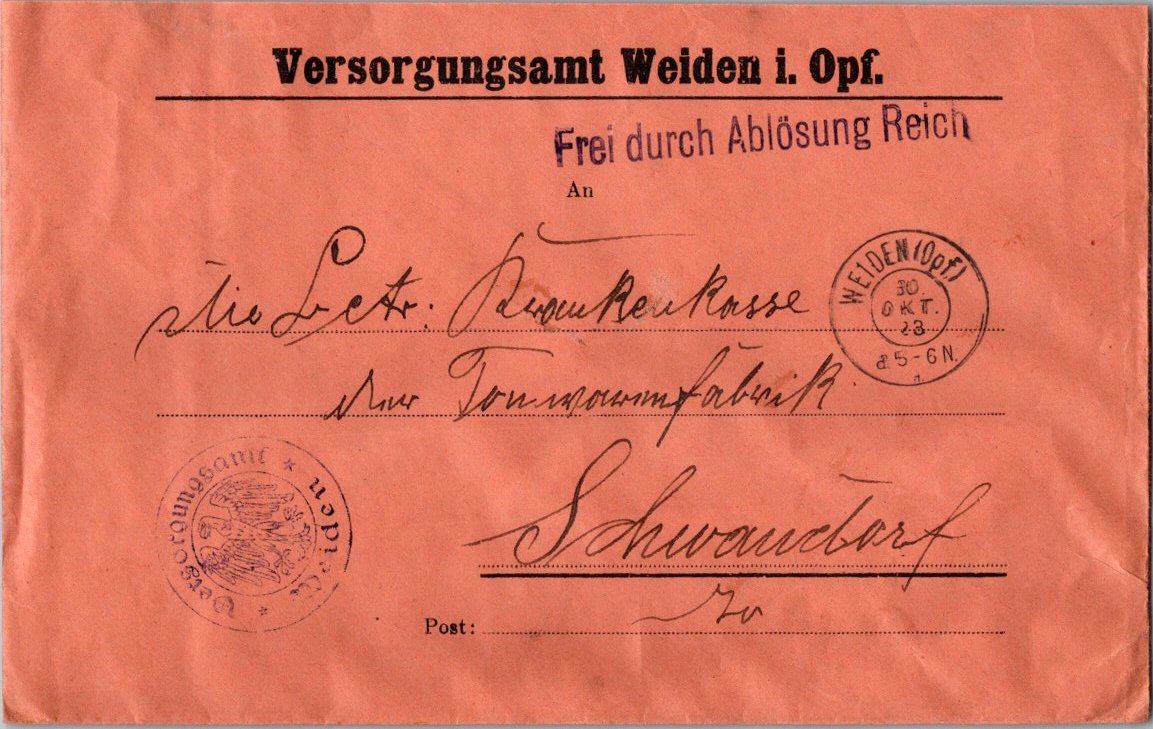 Versorgungsamt Weiden i. Opf.
Frei durch Ablösung Reich
An
die Betr. Krankenkasse
WEIDEN (Opf)
30
OKT.
23
5-6 N.
der Tonwarenfabrik
Versorgungsamt * Weiden *
Schwandorf
Post: